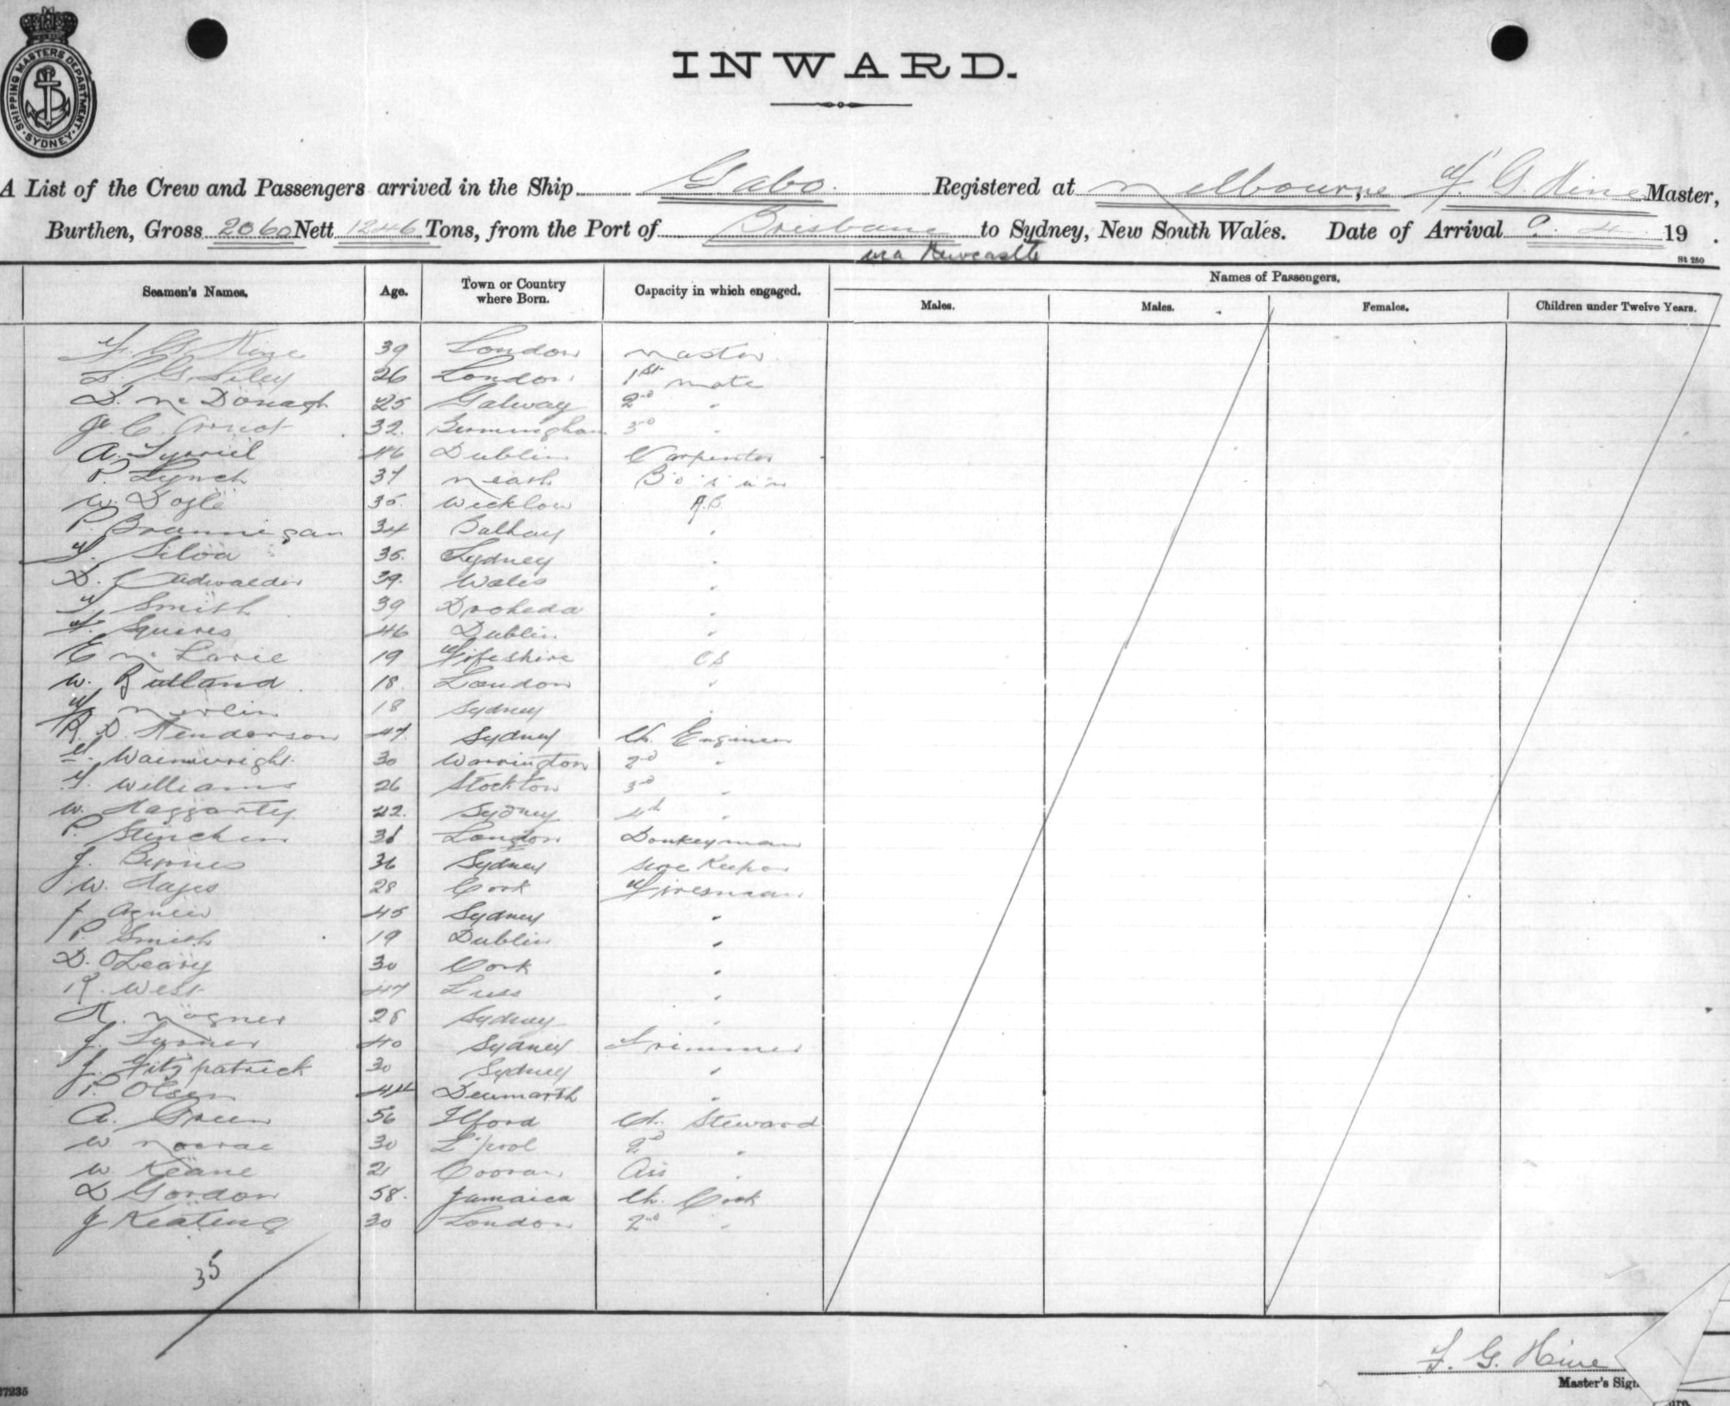 SHIPPING MASTERS DEPARTMENT · SYDNEY ·
INWARD.
A List of the Crew and Passengers arrived in the Ship Gabo. Registered at Melbourne, F. G. Hine Master,
Burthen, Gross 2060 Nett 1246 Tons, from the Port of Brisbane to Sydney, New South Wales. Date of Arrival 9. 4. 19 .
via Newcastle
St 250
Seamen's Names. Age. Town or Country where Born. Capacity in which engaged. Names of Passengers.
Males. Males. Females. Children under Twelve Years.
F. G. Hine 39 London Master
L. G. Liley 26 London 1st Mate
D. McDonagh 25 Galway 2nd "
C. 32. Birmingham 3d "
A. 46 Dublin Carpenter
P. Lynch 37 Meath Bo's'u'n
W. Doyle 35. Wicklow A.B.
P. Brannigan 34 "
F. Silva 35. Sydney "
D. Cadwalder 39. Wales "
F. Smith 39 Droheda "
F. Squires 46 Dublin "
E Mc 19 Fifeshire O S
W. Rutland 18. London "
F. Merlin 18 Sydney
R. D. Henderson 47. Sydney Ch. Engineer
Wainwright 30 Warrington 2nd "
F. Williams 26 Stockton 3d "
W. Haggarty 22. Sydney 4th "
P. London Donkeyman
J. Byrnes 36 Sydney Store Keeper
W. Hayes 28 Cork Firesman
J Agnew 45 Sydney "
P. Smith 19 Dublin "
D. O'Leary 30 Cork "
R. West 47 Luss "
H. Wagner 28 Sydney "
J. Turner 40 Sydney Trimmer
J. Fitzpatrick 30 Sydney "
P. Olsen 44 Denmark "
A. Green 56 Ilford Ch. Steward
W 30 L'pool 2d "
W Keane 21 Cooran Ass "
D Gordon 58. Jamaica Ch. Cook
J Keating 30 London 2nd "
35
F. G. Hine
Master's Sign
7235